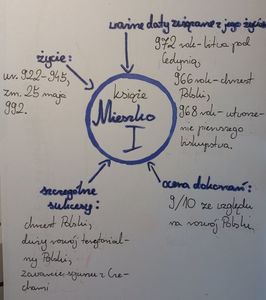 ważne daty związane z jego życiem
972 rok - bitwa pod
Cedynią,
966 rok - chrzest
Polski,
968 rok - utworze-
nie pierwszego
biskupstwa.
życie:
ur. 922-945,
zm. 25 maja
992.
książę
Mieszko
I
szczególne
sukcesy:
chrzest Polski,
duży rozwój terytorial-
ny Polski,
zawarcie sojuszu z Cze-
chami
ocena dokonań:
9/10 ze względu
na rozwój Polski.